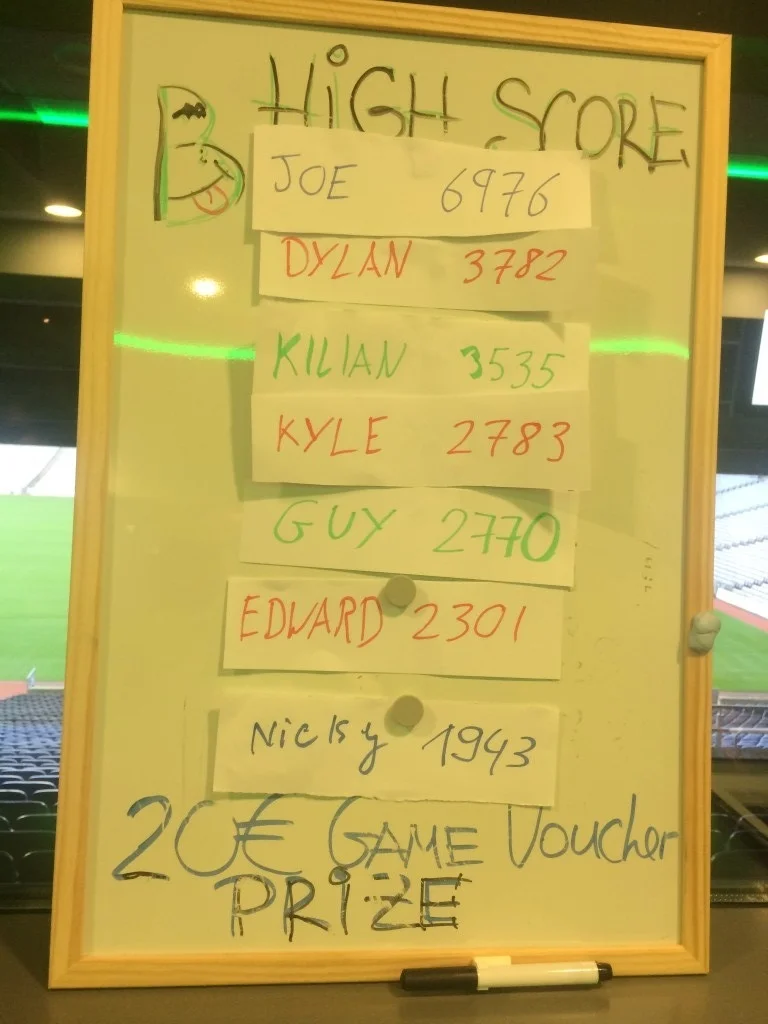 HiGH SCORE
JOE 6976
DYLAN 3782
KILIAN 3535
KYLE 2783
GUY 2770
EDWARD 2301
Nicky 1943
20€ GAME Voucher
PRiZE